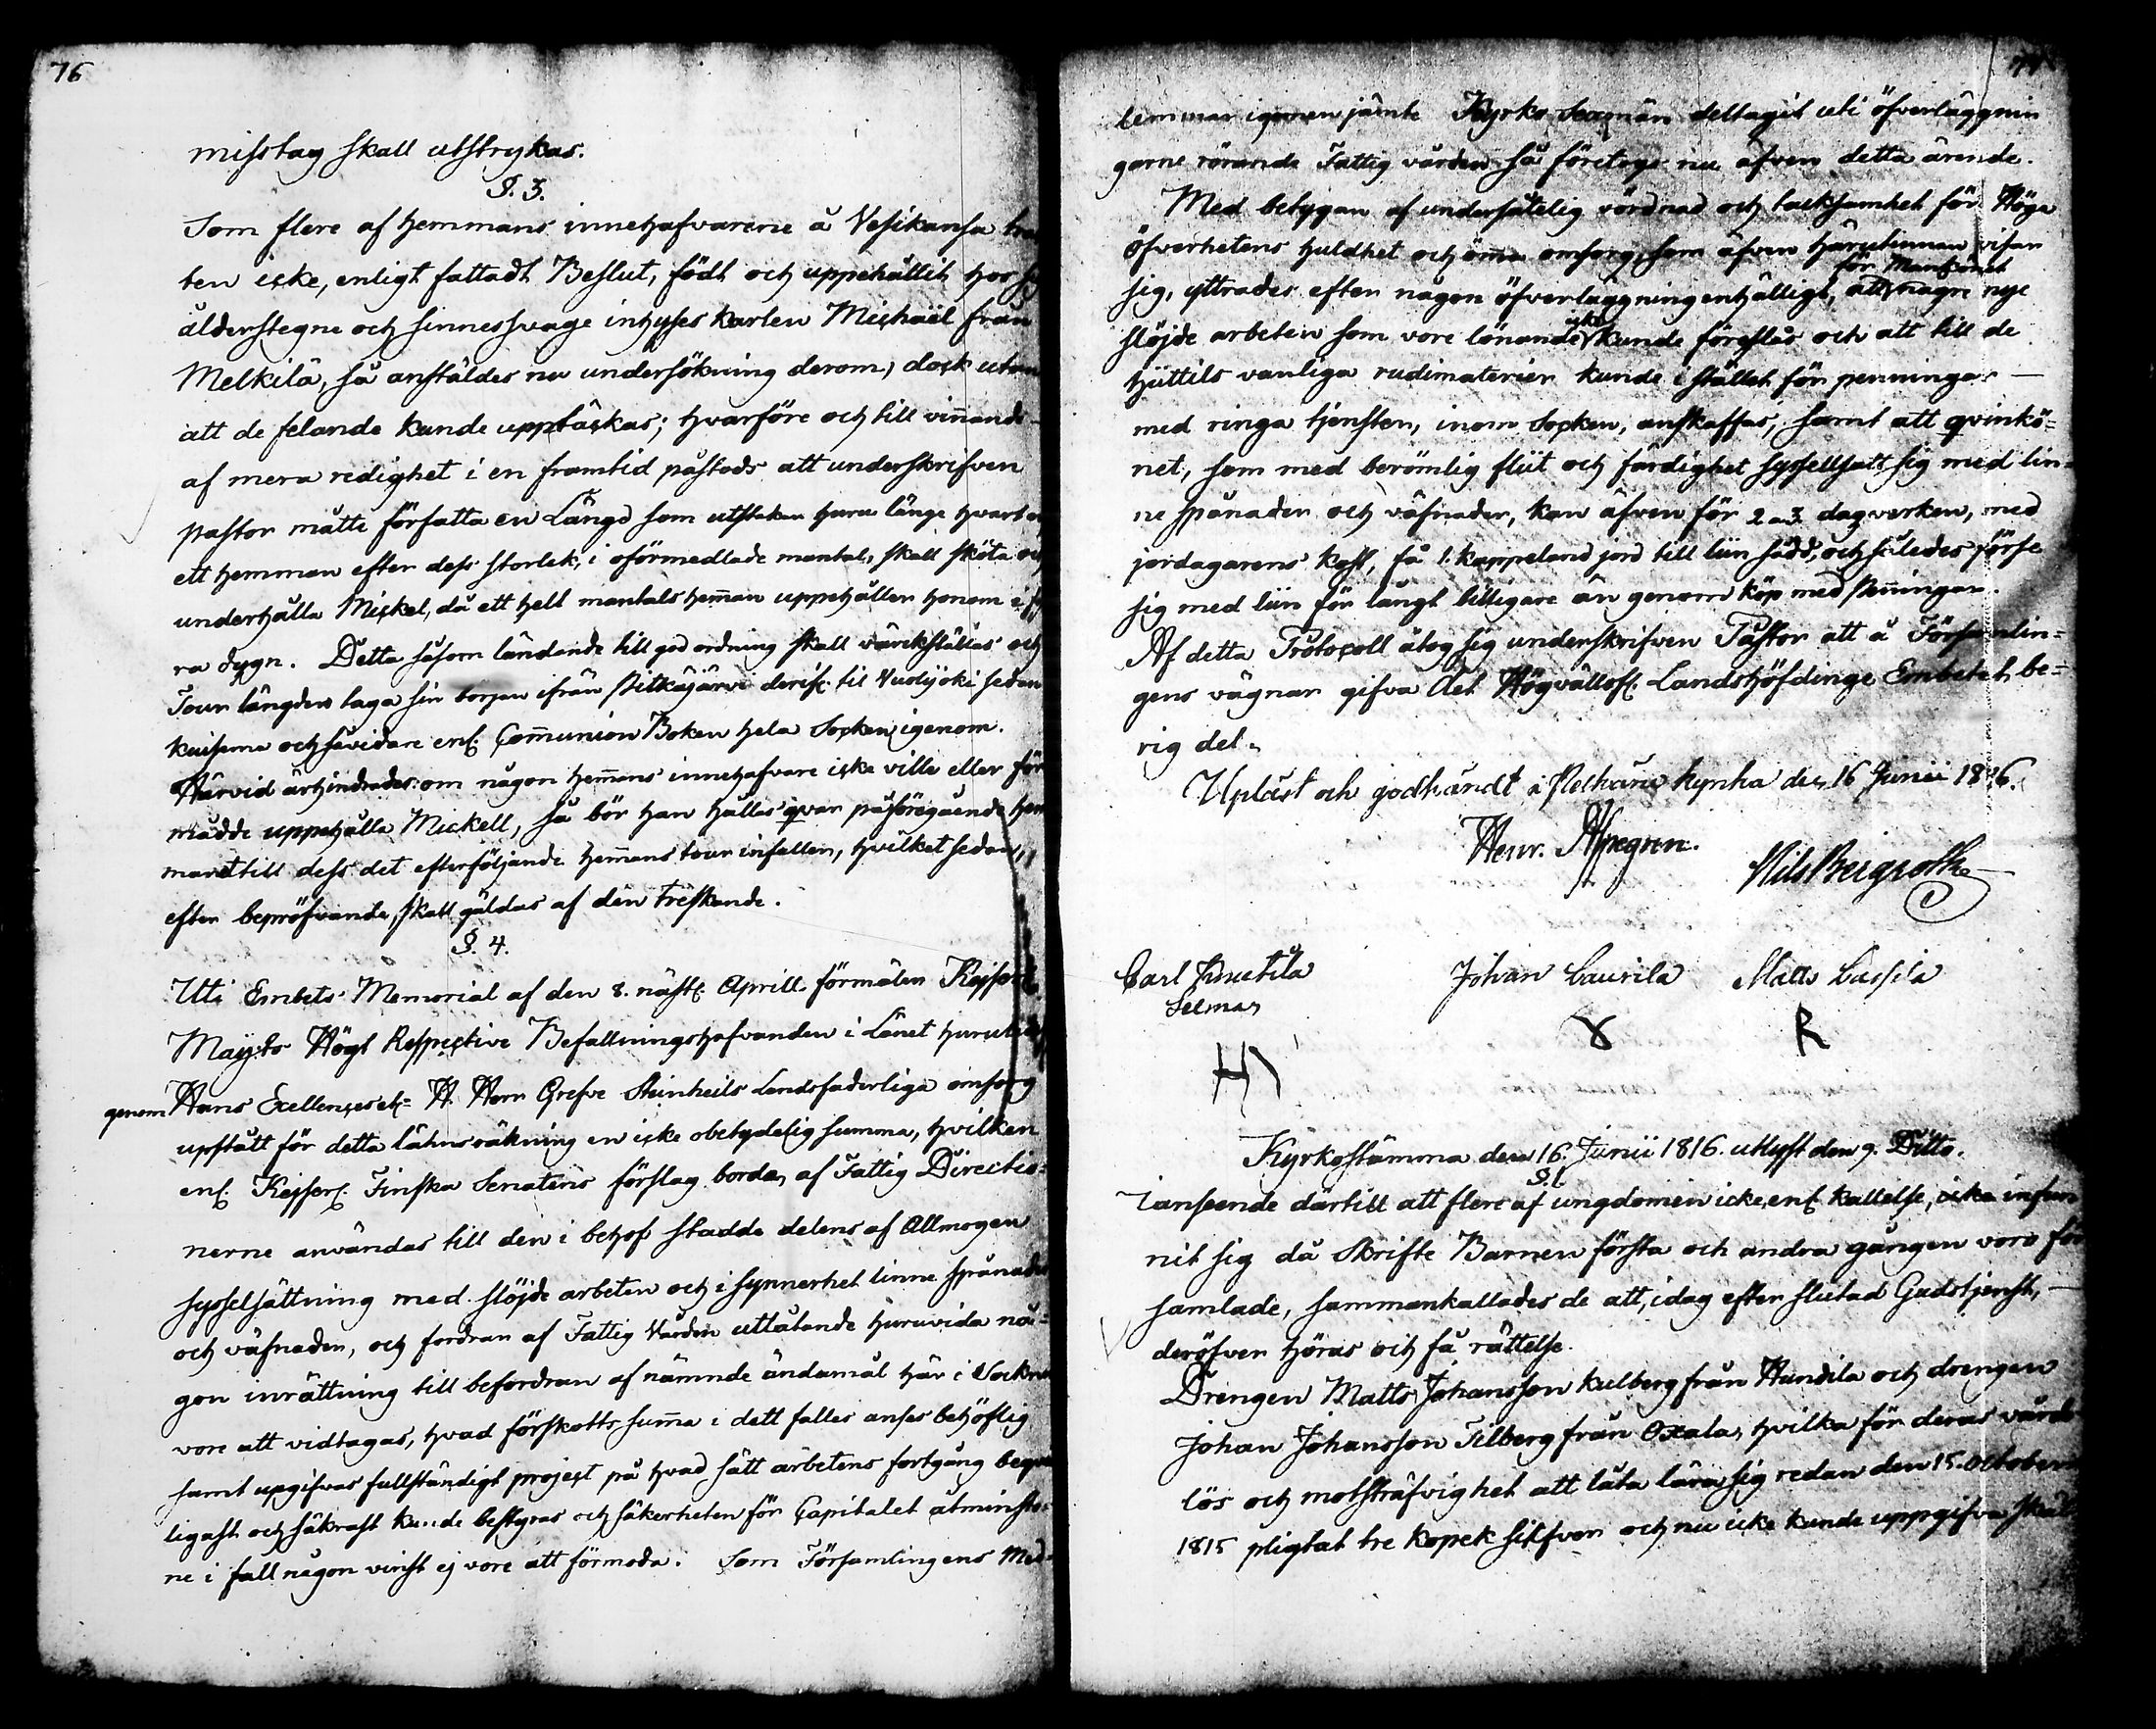 76
misstag skall utstrykas.
§. 3.
Som flere af hemmans innehafvarene å Vesikansa
ten icke, enligt fattadt Beslut, födt och uppehållit hos
ålderstegne och sinnessvage inhyses karlen Michäel från
Melkilä, så anstäldes nu undersökning derom, dock utan
att de felande kunde upptäckas; hvarföre och till vinnande
af mera redighet i en framtid påstods att underskrifven
pastor måtte författa en Längd som utstakar huru länge hvart
ett hemman efter dess storlek, i oförmedlade mantal, skall sköta och
underhålla Mickel, då ett helt mantals hem̄an uppehåller honom
ra dygn. Detta såsom ländande till god ordning skall värckställas och
Tour längden taga sin borjan ifrån Pitkäjärvi derifr. til Vuolijoki sedan
kuiserna och så vidare enl. Com̄union Boken hela Socken igenom.
Härvid ärhindrades: om någon hem̄ans innehafvare icke ville eller för
mådde uppehålla Mickell, så bör han hållas qvar på föregående hem
manet till dess det efterföljande hem̄ans tour infaller, hvilket sedan,
efter bepröfvande, skall gäldas af den treskande.
§. 4.
Uti Embets Memorial af den 8. nästl. Aprill förmäler Kejserl.
Maij:ts Högt Respective Befallningshafvanden i Länet
genom Hans Excellences etc. H. Herr Grefve Steinheils Landsfaderliga omsorg
upstått för detta lähns räkning en icke obetydelig summa, hvilken
enl. Kejserl. Finska Senatens förslag borde af Fattig Directio=
nerne användas till den i behof stadde delens af Allmogen
sysselsättning med slöjde arbeten och i synnerhet linne spånader
och väfnader, och fordrar af Fattig Vården utlåtande huruvida nå=
gon inrättning till befordran af nämnde ändamål här i Socknen
vore att vidtagas, hvad förskotts sum̄a i dett falles anses behöflig
samt upgifvas fullständigt project på hvad sätt arbetens fortgång beqvä
ligast och säkrast kunde bestyras och säkerheten för Capitalet åtminsto=
ne i fall någon vinst ej vore att förmoda. Som Församlingens Med=
77
lemmar igenom jämte Kyrko Sexmän deltagit uti öfverläggnin
garne rörande Fattig vården så företogs nu äfven detta ärende.
Med betygan af undersåtelig vördnad och tacksamhet för Höga
Öfverhetens huldhet och öma omsorg, som äfven härutinnan visar
för Mankönet
sig, yttrades efter någon öfverläggning enhälligt, att några nye
icke
slöjde arbeten som vore lönande kunde föreslås och att till de
hittils vanliga rudimaterier kunde i stället för penningar
med ringa tjenster, inom Socken, anskaffas, samt att qvinkö=
net, som med berömlig fliit och färdighet sysselsatt sig med lin=
ne spånader och väfnader, kan äfven för 2 a 3 dagverken, med
jordagarens kost, få 1. kappeland jord till liin sådd, och således förse
sig med liin för långt billigare än genom köp med Pen̄ingar.
Af detta Protocoll åtog sig underskrifven Pastor att å Församlin=
gens vägnar gifva det Högvällofl. Landshöfdinge Embetet be=
rig del.
Uplåst och godkändt i Pelkäne kyrka den 16 Junii 1816.
Henr. Alpegren.
Nils Bergroth
Carl Knutila
Selmar
Johan Laurila
Matts Lassila
Kyrkostämma den 16. Junii 1816. utlyst den 9. Ditto.
§.1.
I anseende därtill att flere af ungdomen icke enl. kallelse, icke infun
nit sig då Skrifte Barnen första och andra gången voro för
samlade, sammankallades de att, idag efter slutad Gudstjenst,
deröfver höras och få rättelse.
Drengen Matts Johansson Kulberg från Hundila och drengen
Johan Johansson Tilberg från Oxala, hvilka för deras vårds
lös och motsträfvighet att låta lära sig redan den 15. October
1815 pligtat tre kopek silfver och nu icke kunde uppgifva skäl